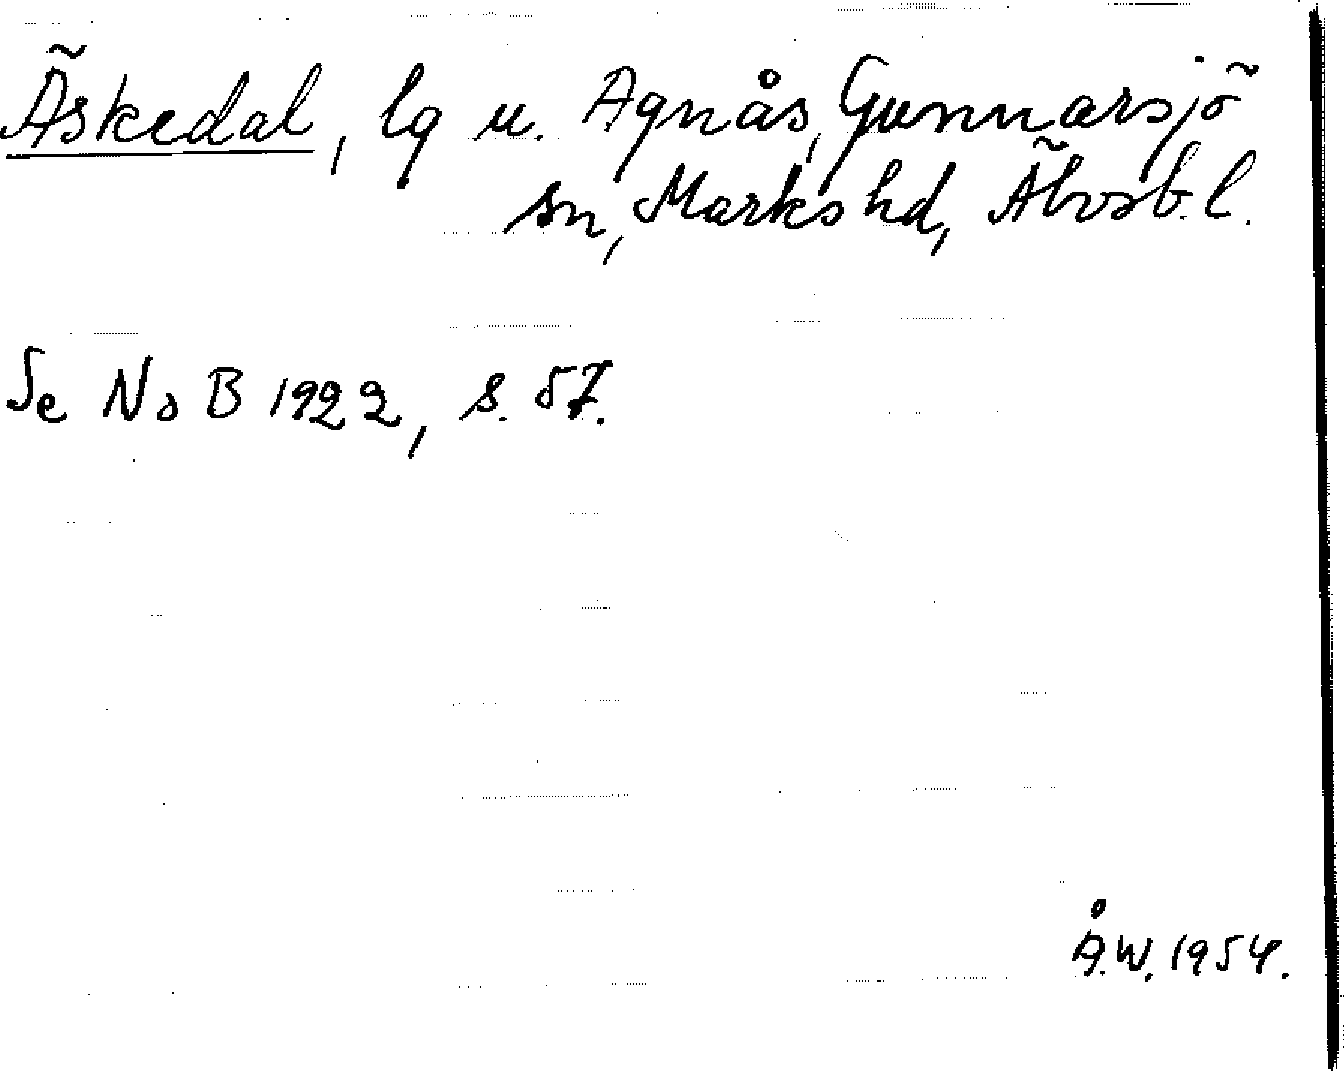 Äskedal, lg u. Agnås, Gunnarsjö
sn, Marks hd, Älvsb. l.
Se NoB 1922, s. 57.
Å.W. 1954.